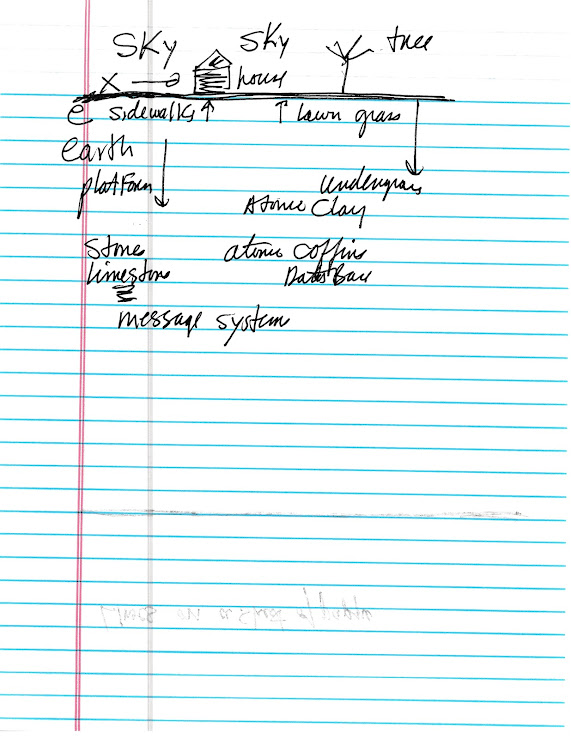 SKy sky tree
X house
e sidewalks lawn grass
earth
platform undergrass
Atomic Clay
stone atomic coffins
limestone DataBase
message system